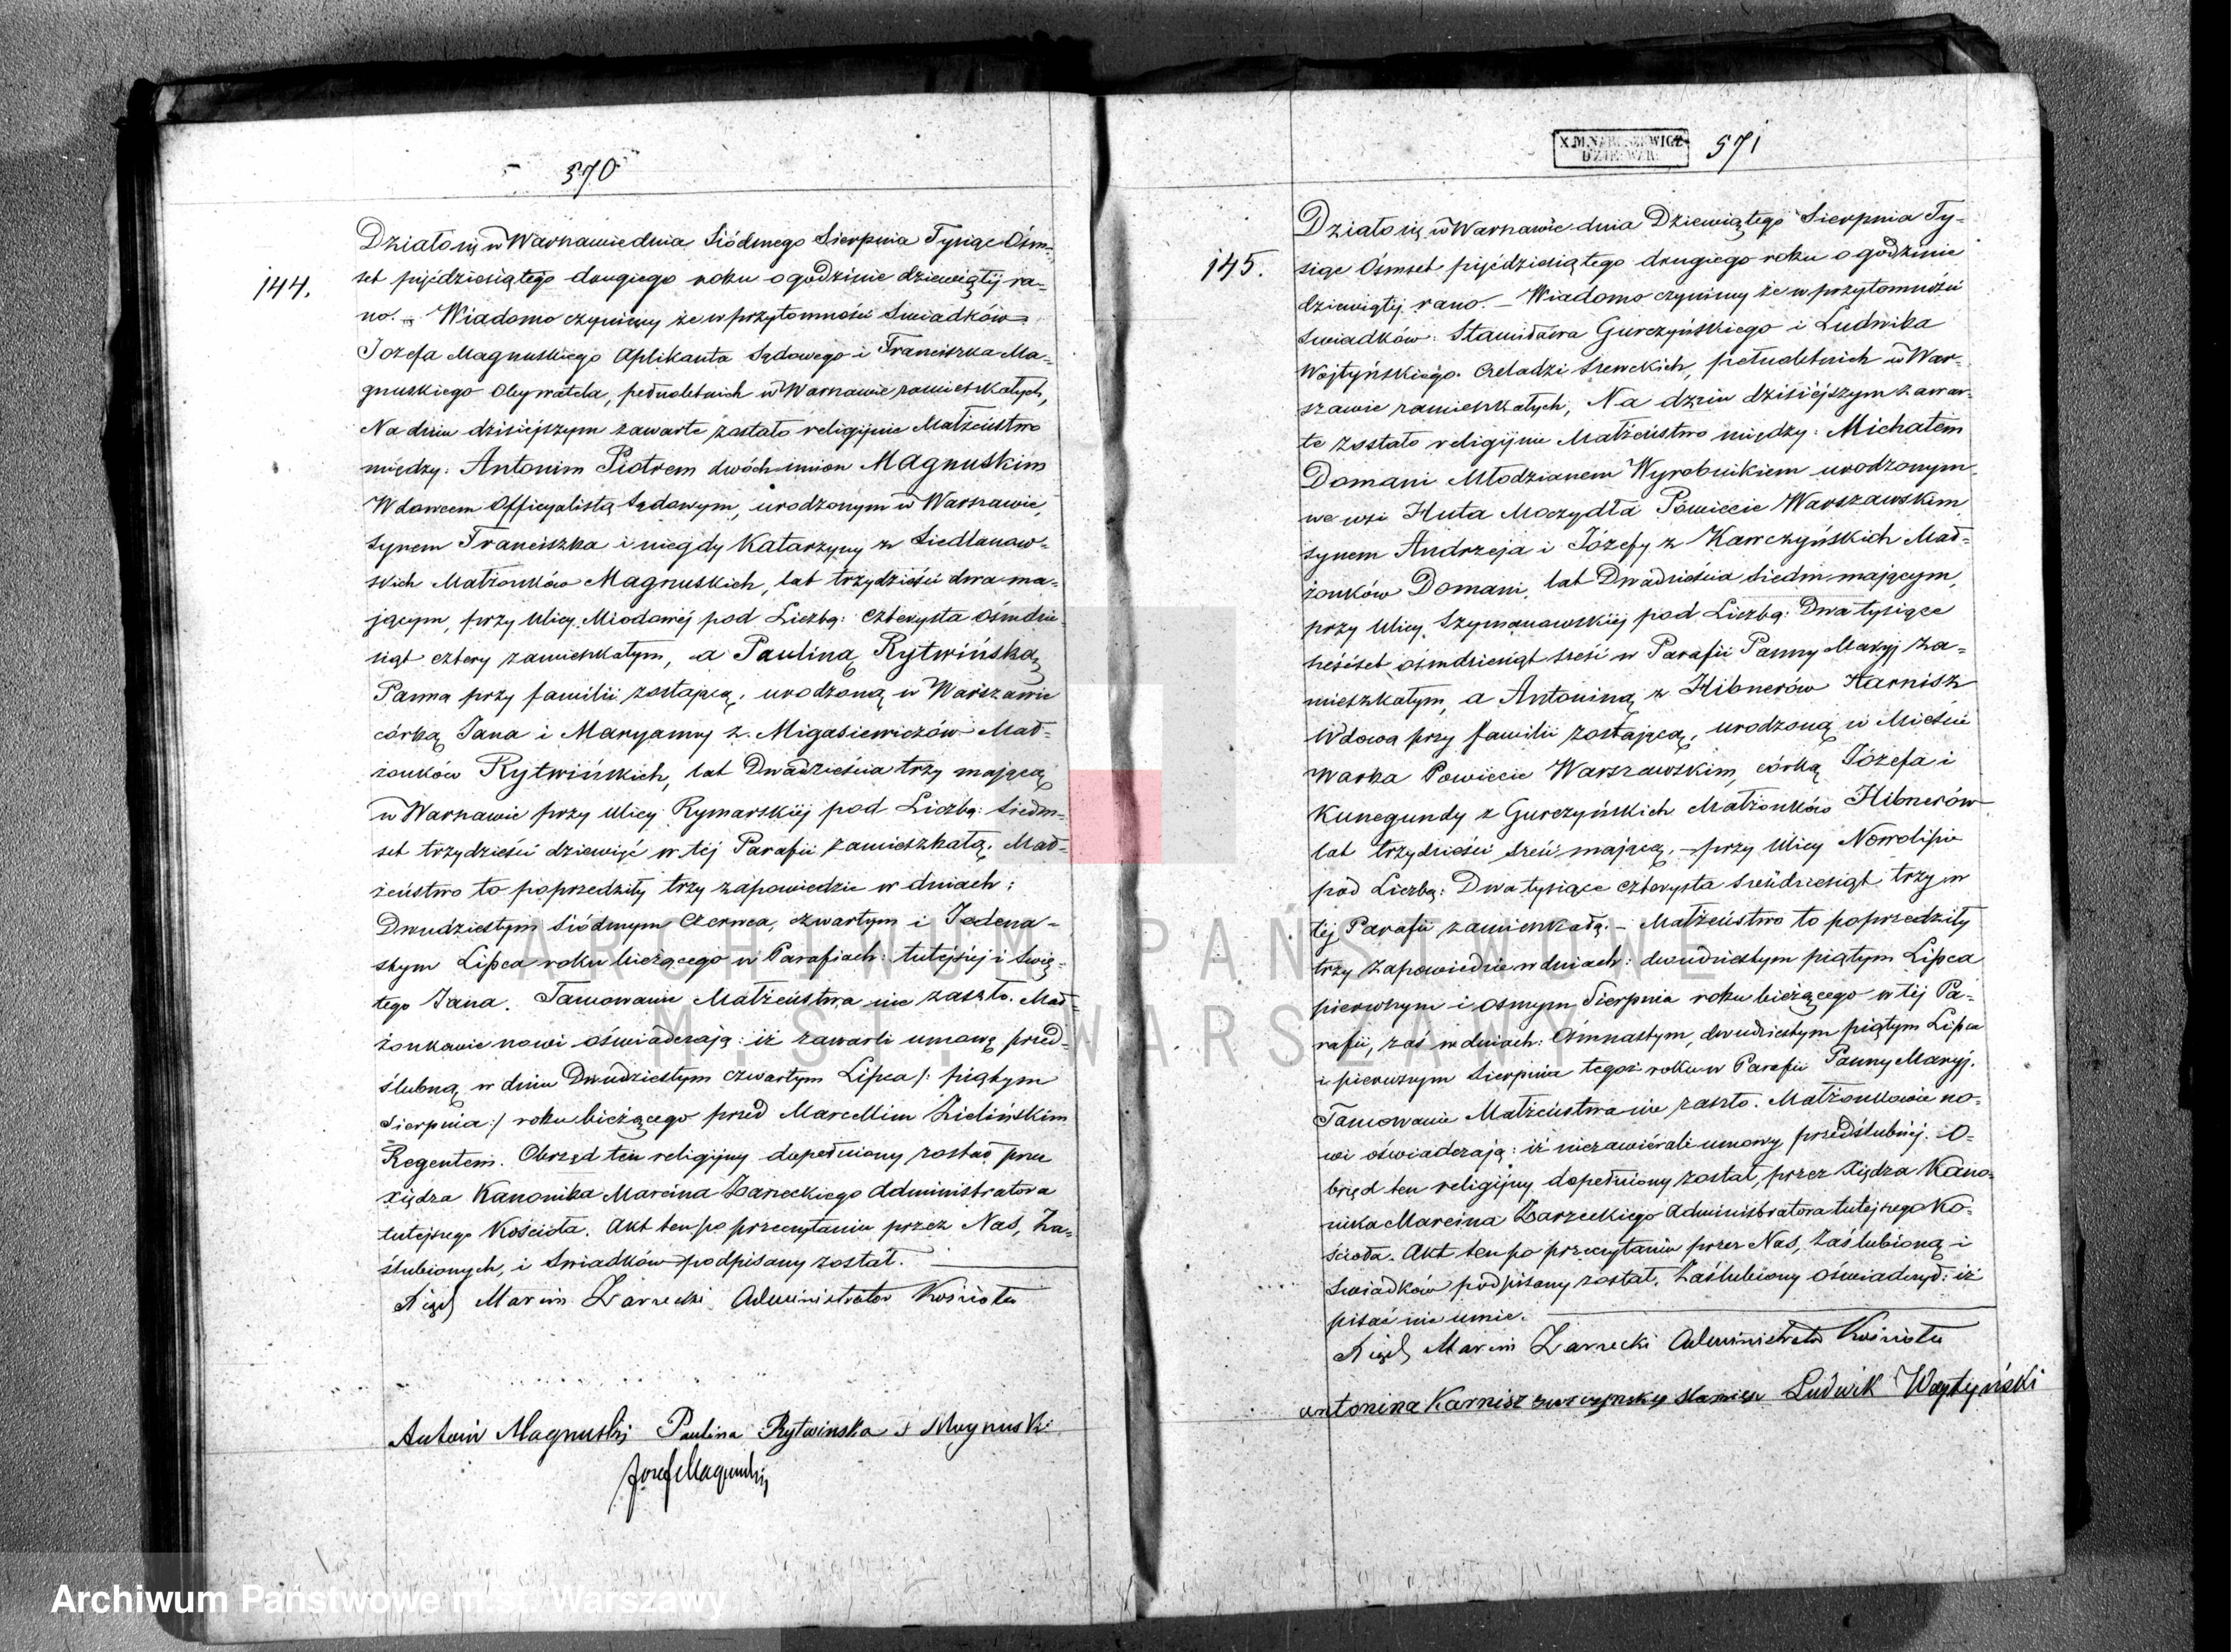 570
144.
Działo się w Warszawie dnia Siódmego Sierpnia Tysiąc Ośm=
set pięćdziesiątego drugiego roku o godzinie dziewiątéj ra=
no. – Wiadomo czynimy że w przytomności Swiadków
Jozefa Magnuskiego Aplikanta Sądowego i Franciszka Ma=
gnuskiego Obywatela, pełnoletnich w Warszawie zamieszkałych,
Na dniu dzisiejszym zawarte zostało religijnie Małżeństwo
między: Antonim Piotrem dwóch imion Magnuskim
Wdowcem Officyalistą Sądowym, urodzonym w Warszawie,
Synem Franciszka i niegdy Katarzyny z Siedlanow=
skich Małżonków Magnuskich, lat trzydzieści dwa ma=
jącym, przy Ulicy Miodowéj pod Liczbą: Czterysta Ośmdzie=
siąt cztery zamieszkałym, a Pauliną Rytwińską
Panną przy familii zostającą, urodzoną w Warszawie
córką Jana i Maryanny z Migasiewiczów Mał=
żonków Rytwińskich, lat Dwadzieścia trzy mającą
w Warszawie przy Ulicy Rymarskiéj pod Liczbą: Siedm=
set trzydzieści dziewięć w téj Parafii zamieszkałą. Mał=
żeństwo to poprzedziły trzy zapowiedzie w dniach:
Dwudziestym Siódmym Czerwca, czwartym i Jedena=
stym Lipca roku bieżącego w Parafiach: tutéjszéj i Swię=
tego Jana. Tamowanie Małżeństwa nie zaszło. Mał=
żonkowie nowi oświadczają: iż zawarli umowę przed=
ślubną w dniu Dwudziestym czwartym Lipca /: piątym
Sierpnia :/ roku bieżącego przed Marcellim Zielińskim
Regentem. Obrzęd ten religijny dopełniony został przez
Xiędza Kanonika Marcina Zarzeckiego Administratora
tutejszego Kościoła. Akt ten po przeczytaniu przez Nas, Za=
ślubionych, i Swiadków podpisany został.
Xiądz Marcin Zarzecki Administrator Kościoła
Antoni Magnuski Paulina Rytwinska F Magnuski
Jozef Magnuski
X.M.
571
145.
Działo się w Warszawie dnia Dziewiątego Sierpnia Ty=
siąc Ośmset pięćdziesiątego drugiego roku o godzinie
dziewiątéj rano. – Wiadomo czynimy że w przytomności
Swiadków: Stanisława Gurczyńskiego i Ludwika
Wojtyńskiégo Czeladzi Szewckich, pełnoletnich w War=
szawie zamieszkałych, Na dniu dzisiéjszym zawar=
te zostało religijnie Małżeństwo między: Michałem
Domani Młodzianem Wyrobnikiem urodzonym
we wsi Huta Moczydła Powiecie Warszawskim
synem Andrzeja i Józefy z Kawczyńskich Mał=
żonków Domani, lat Dwadzieścia Siedm mającym,
przy Ulicy Szymanowskiéj pod Liczbą: Dwa tysiące
sześćset ośmdziesiąt sześć w Parafii Panny Maryj za=
mieszkałym, a Antoniną z Hibnerów Karnisz
Wdową przy familii zostającą, urodzoną w Mieście
Warka Powiecie Warszawskim, córką Józefa i
Kunegundy z Gurczyńskich Małżonków Hibnerów
lat trzydzieści sześć mającą, – przy Ulicy Nowolipie
pod Liczbą: Dwa tysiące czterysta sześćdziesiąt trzy w
téj Parafii zamieszkałą. – Małżeństwo to poprzedziły
trzy zapowiedzie w dniach: dwudziestym piątym Lipca
pierwszym i ósmym Sierpnia roku bieżącego w téj Pa=
rafii, zaś w dniach: Ośmnastym, dwudziestym piątym Lipca
i pierwszym Sierpnia tegoż roku w Parafii Panny Maryj.
Tamowanie Małżeństwa nie zaszło. Małżonkowie no=
wi oświadczają: iż niezawiérali umowy przedślubnéj. O=
brzęd ten religijny dopełniony został, przez Xiędza Kano=
nika Marcina Zarzeckiego Administratora tutejszego Ko=
ścioła. Akt ten po przeczytaniu przez Nas, Zaślubioną i
Swiadków podpisany został. Zaślubiony oświadczył: iż
pisać nie umie.
Xiądz Marcin Zarzecki Administrator Kościoła
antonina Karnisz Ludwik Woytyński
ARCHIWUM PAŃSTWOWE
M.ST.WARSZAWY
Archiwum Państwowe m.st. Warszawy